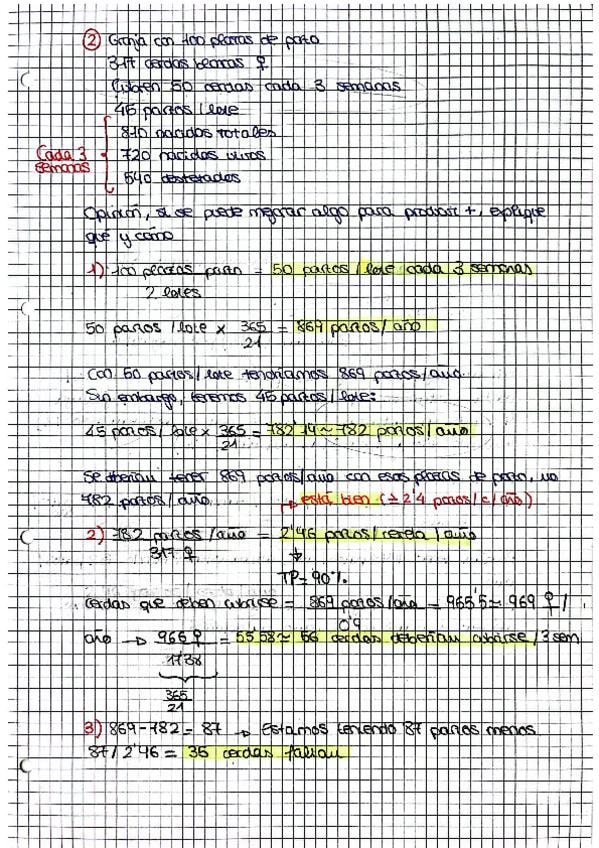 ② Granja con 100 plazas de parto
317 cerdas blancas ♀
Cubren 50 cerdas cada 3 semanas
45 partos / lote
Cada 3 semanas
810 nacidos totales
720 nacidos vivos
540 destetados
Opinión, si se puede mejorar algo para producir +, explique
qué y cómo
1) 100 plazas parto / 2 lotes = 50 partos / lote cada 3 semanas
50 partos / lote x 365/21 = 869 partos / año
Con 50 partos / lote tendríamos 869 partos / año.
Sin embargo, tenemos 45 partos / lote:
45 partos / lote x 365/21 = 782'14 ≈ 782 partos / año
Se deberían tener 869 partos / año con esas plazas de parto, no
782 partos / año.
→ está bien (± 2'4 partos / c / año)
2) 782 partos / año / 317 ♀ = 2'46 partos / cerda / año
↓
TP = 90%
Cerdas que deben cubrirse = 869 partos / año / 0'9 = 965'5 ≈ 969 ♀ /
año → 966 ♀ / 17'38 = 55'58 ≈ 56 cerdas deberían cubrirse / 3 sem
365/21
3) 869 - 782 = 87 → Estamos teniendo 87 partos menos
87 / 2'46 = 35 cerdas faltan